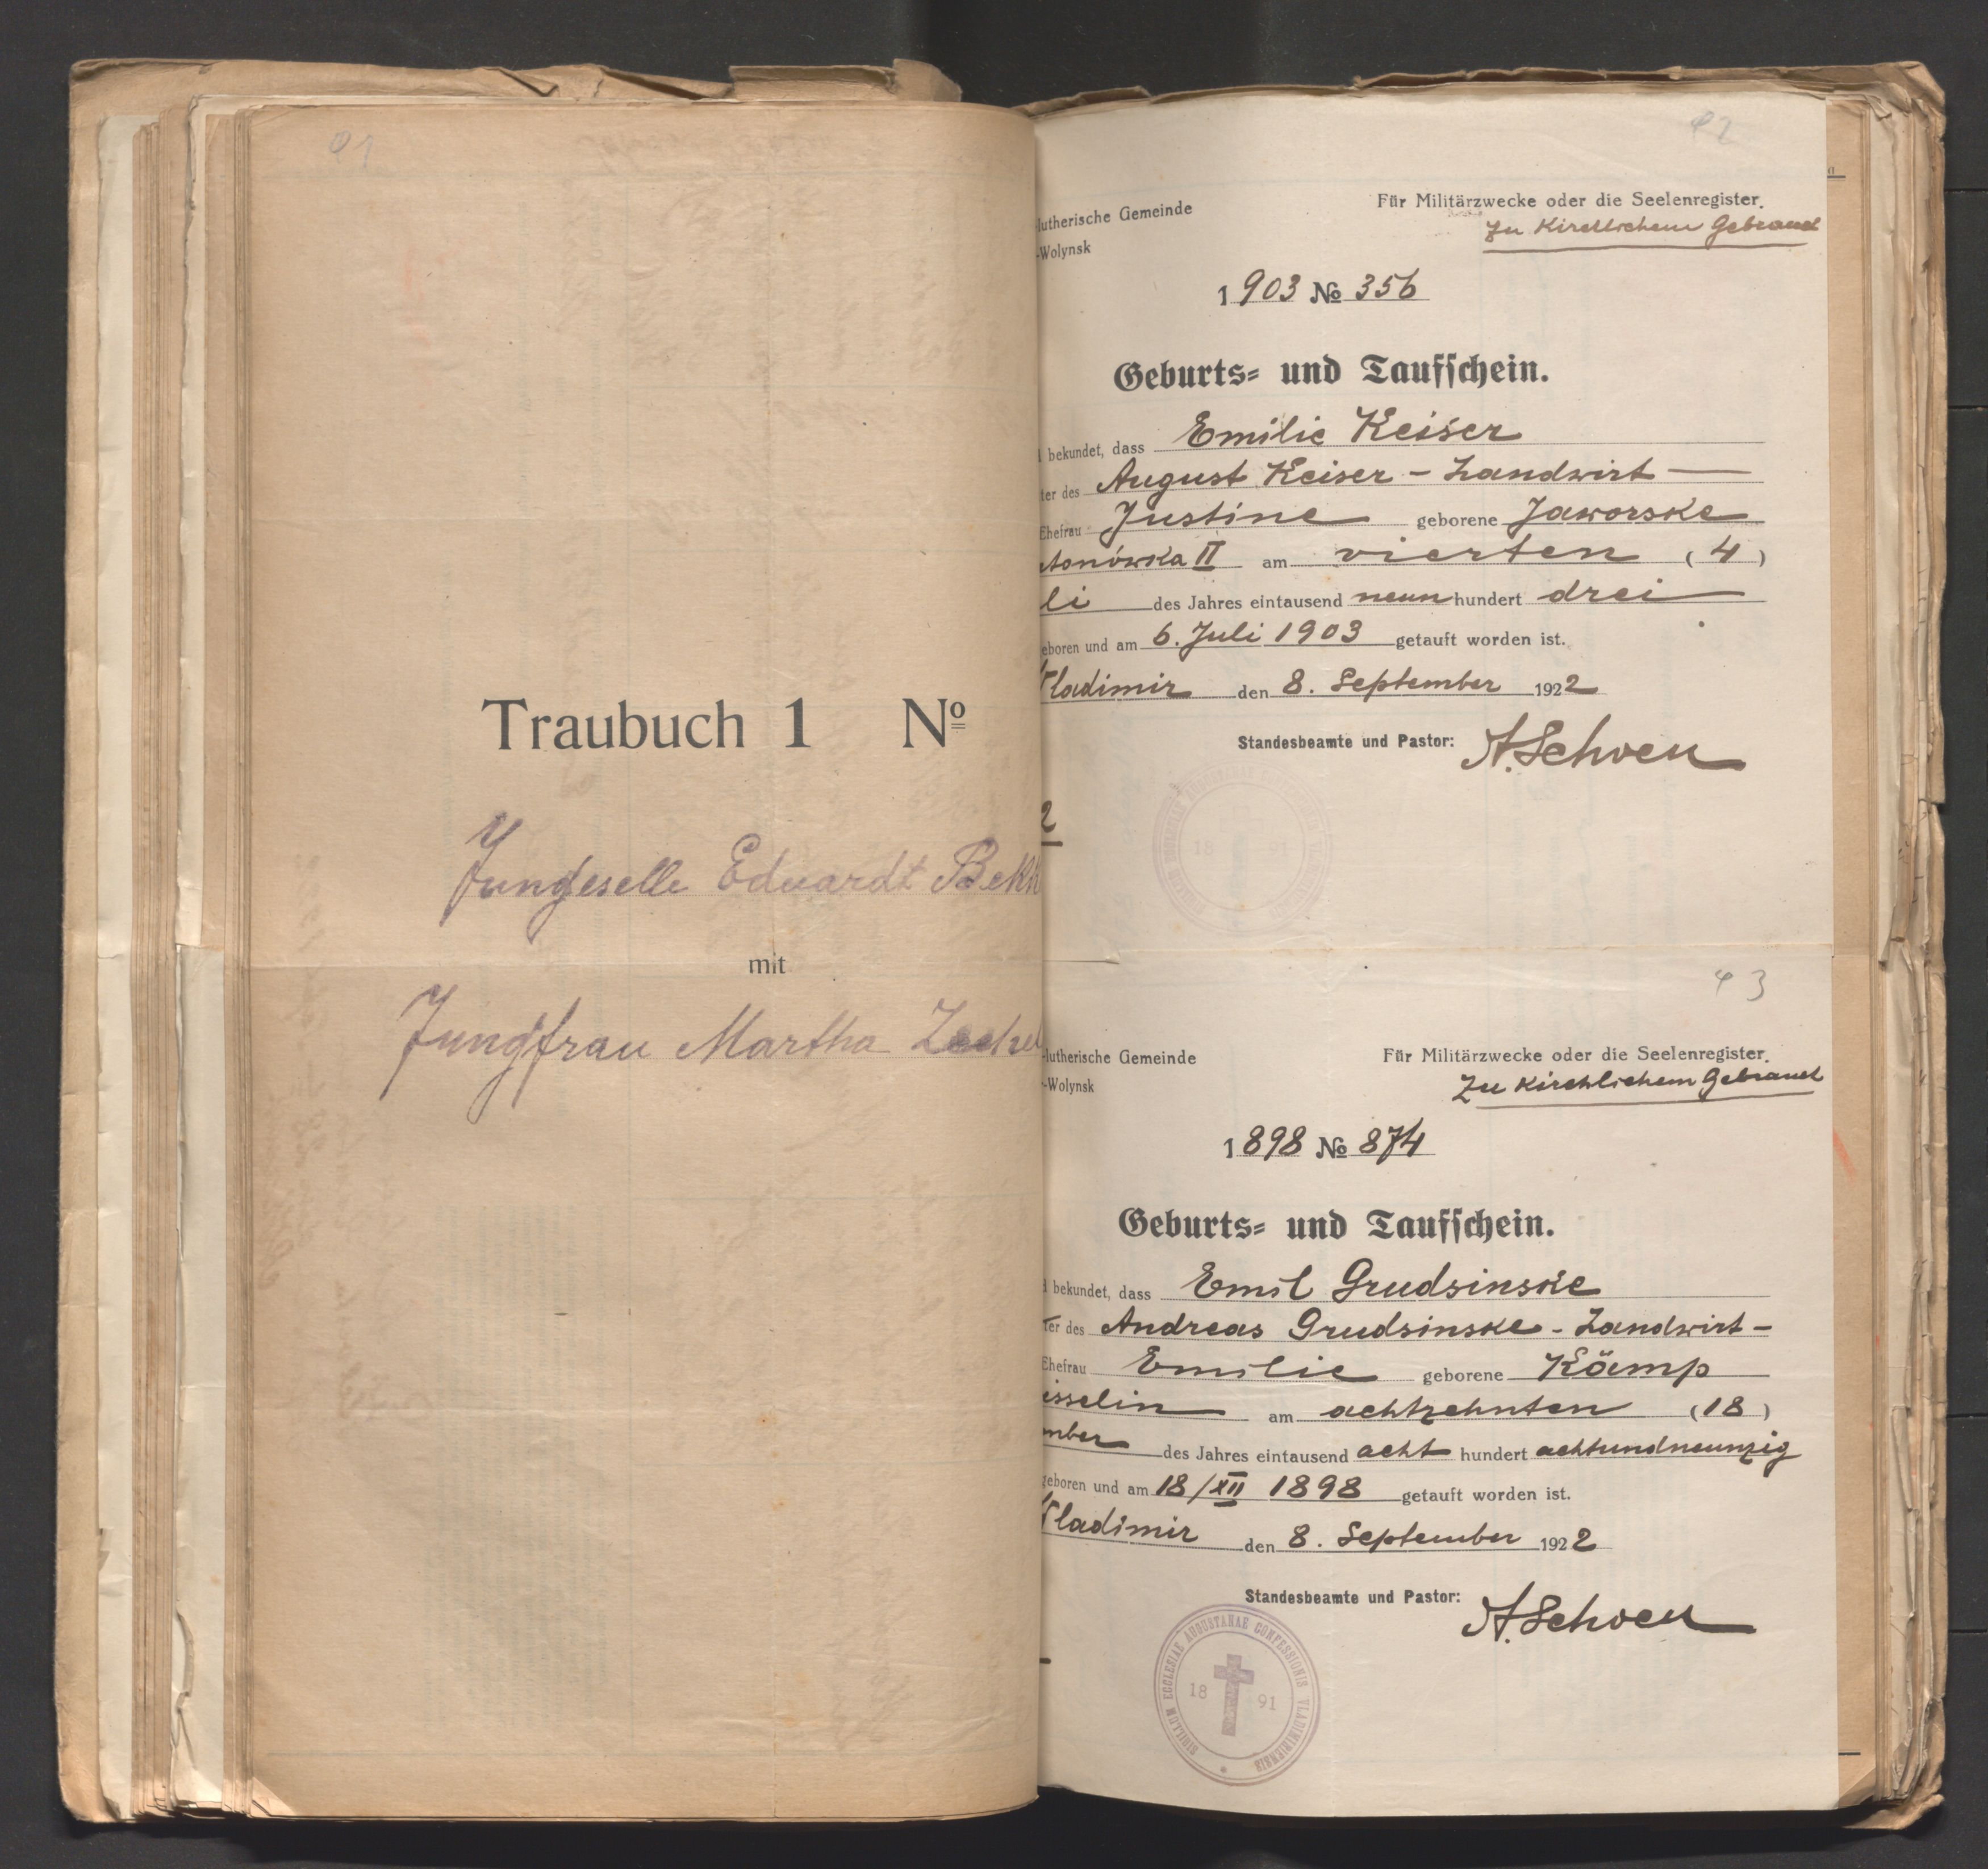 91
Traubuch 1 Nº
Jungeselle Eduardt Bekk
mit
Jungfrau Martha
92
lutherische Gemeinde
-Wolynsk
Für Militärzwecke oder die Seelenregister.
Zu Kirchlichem Gebrauch
1903 № 356
Geburts- und Taufschein.
bekundet, dass Emilie Keiser
ter des August Keiser - Landwirt -
Ehefrau Justine geborene Jaworske
tonówka II am vierten (4)
li des Jahres eintausend neun hundert drei
eboren und am 6. Juli 1903 getauft worden ist.
Vladimir den 8. September 1922
Standesbeamte und Pastor: A. Schoen
18 91
2
93
lutherische Gemeinde
-Wolynsk
Für Militärzwecke oder die Seelenregister.
Zu Kirchlichem Gebrauch
1898 № 874
Geburts- und Taufschein.
bekundet, dass Emil Grudsinske
ter des Andreas Grudsinske - Landwirt -
Ehefrau Emilie geborene Kämp
isselin am achtzehnten (18)
mber des Jahres eintausend acht hundert achtundneunzig
geboren und am 18/XII 1898 getauft worden ist.
Vladimir den 8. September 1922
Standesbeamte und Pastor: A. Schoen
SIGILLUM ECCLESIAE AUGUSTANAE CONFESSIONIS VLADIMIRIENSIS
18 91